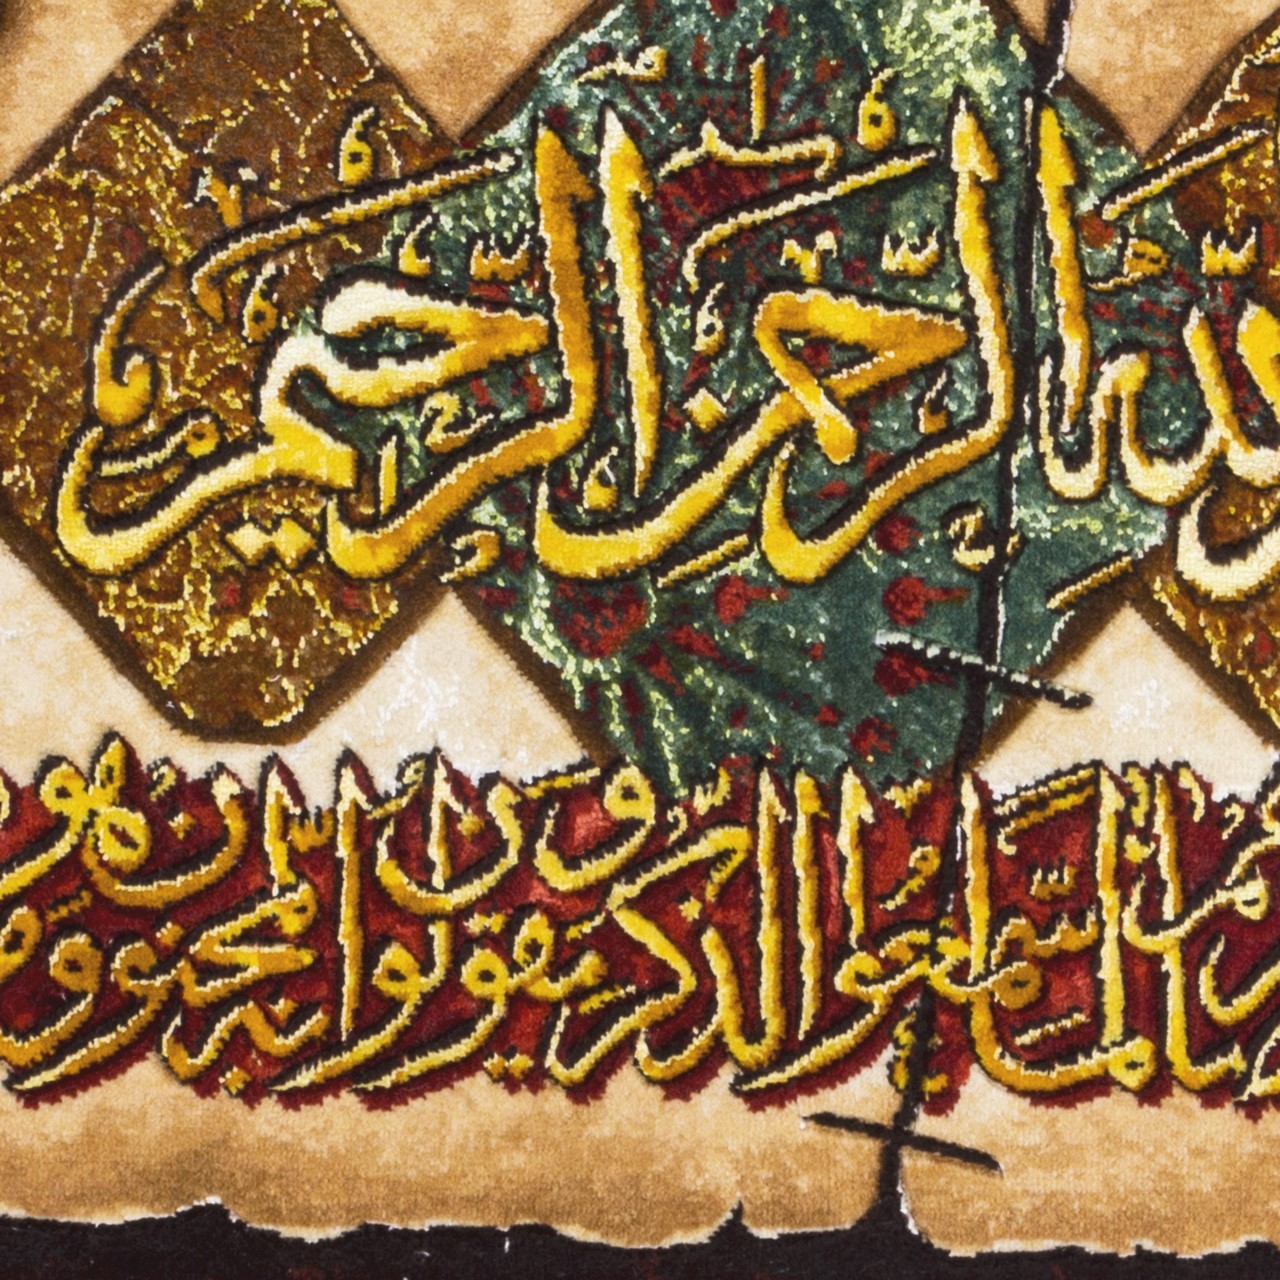 الرَّحْمٰنِ الرَّحِيمِ
لما سمعوا الذكر ويقولون إنه لمجنون وما هو